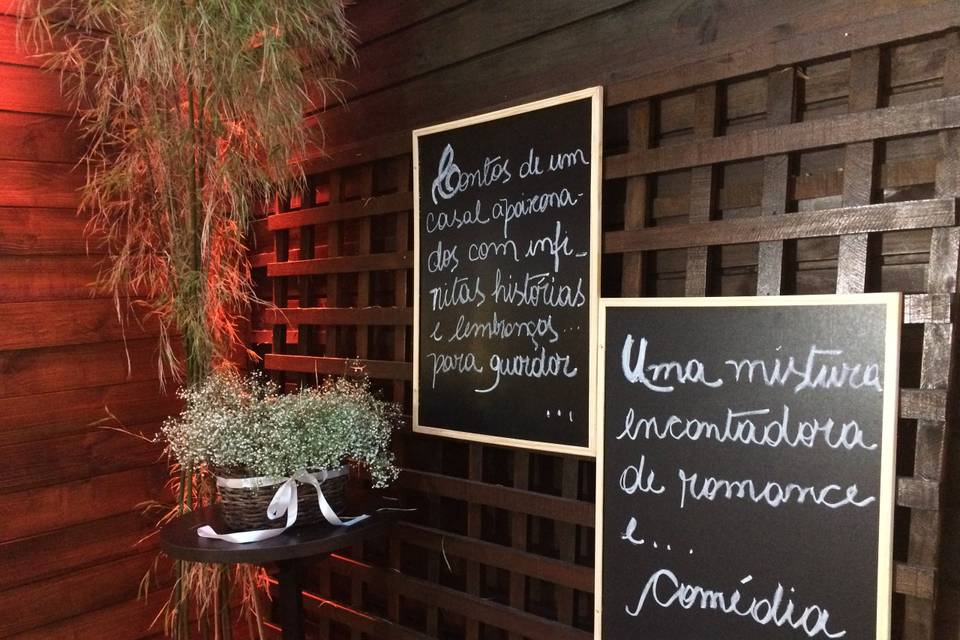 Contos de um
casal apaixona-
dos com infi-
nitas histórias
e lembranças...
para guardar
...
Uma mistura
encantadora
de romance
e...
comédia